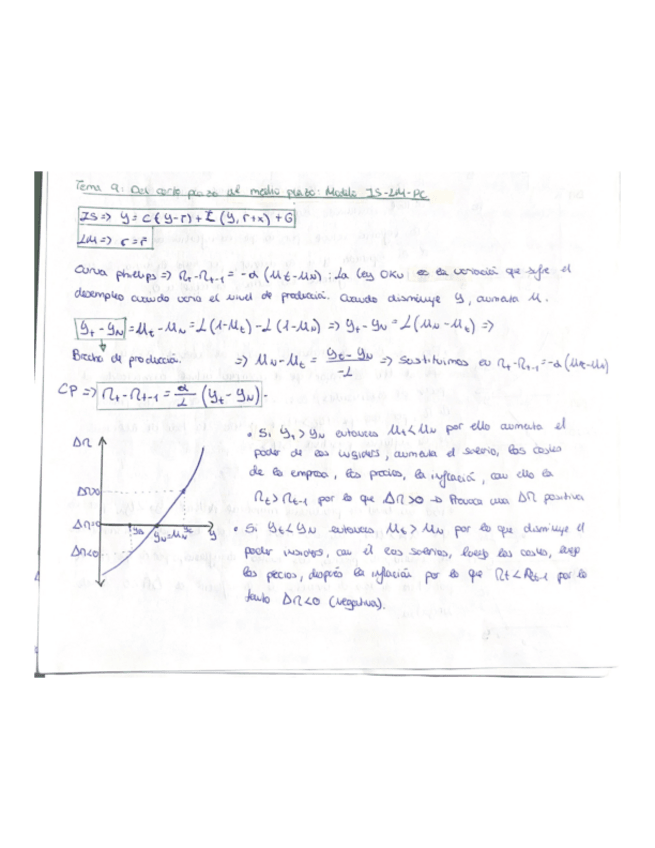 Tema 9: Del corto plazo al medio plazo: Modelo IS-LM-PC
IS => Y = C(Y-T) + I(Y, r+x) + G
LM => r = r̄
Curva phillips => π_t - π_t-1 = -α (μ_t - μ_N) : La ley OKU es la variación que sufre el
desempleo cuando varía el nivel de producción. Cuando disminuye Y, aumenta μ.
Y_t - Y_N = μ_t - μ_N = L(1-μ_t) - L(1-μ_N) => Y_t - Y_N = L(μ_N - μ_t) =>
Brecha de producción. => μ_N - μ_t = (Y_t - Y_N)/-L => sustituimos en π_t - π_t-1 = -α(μ_t - μ_N)
CP => π_t - π_t-1 = α/L (Y_t - Y_N).
• Si Y_t > Y_N entonces μ_t < μ_N por ello aumenta el
poder de los insiders, aumenta el salario, los costes
de la empresa, los precios, la inflación, con ello la
π_t > π_t-1 por lo que Δπ > 0 → Provoca una Δπ positiva
• Si Y_t < Y_N entonces μ_t > μ_N por lo que disminuye el
poder insiders, con él los salarios, luego los costes, luego
los precios, después la inflación por lo que π_t < π_t-1 por lo
tanto Δπ < 0 (negativa).
Δπ
Δπ>0
Δπ=0
Δπ<0
Y_N = μ_N
Y